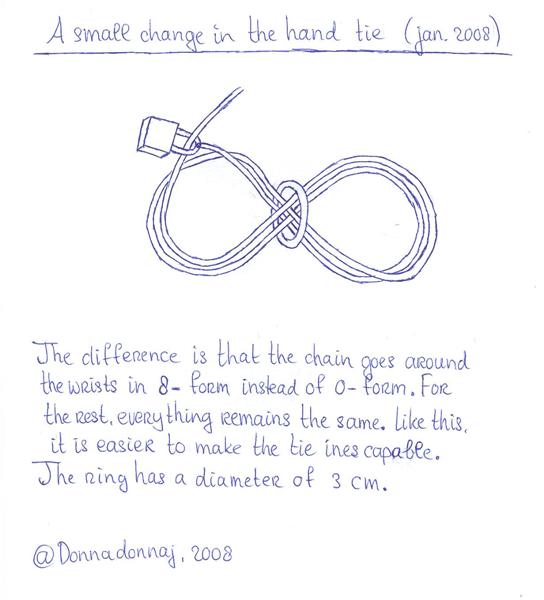 A small change in the hand tie (jan. 2008)
The difference is that the chain goes around
the wrists in 8- form instead of 0- form. For
the rest, everything remains the same. Like this,
it is easier to make the tie inescapable.
The ring has a diameter of 3 cm.
@Donnadonnaj, 2008